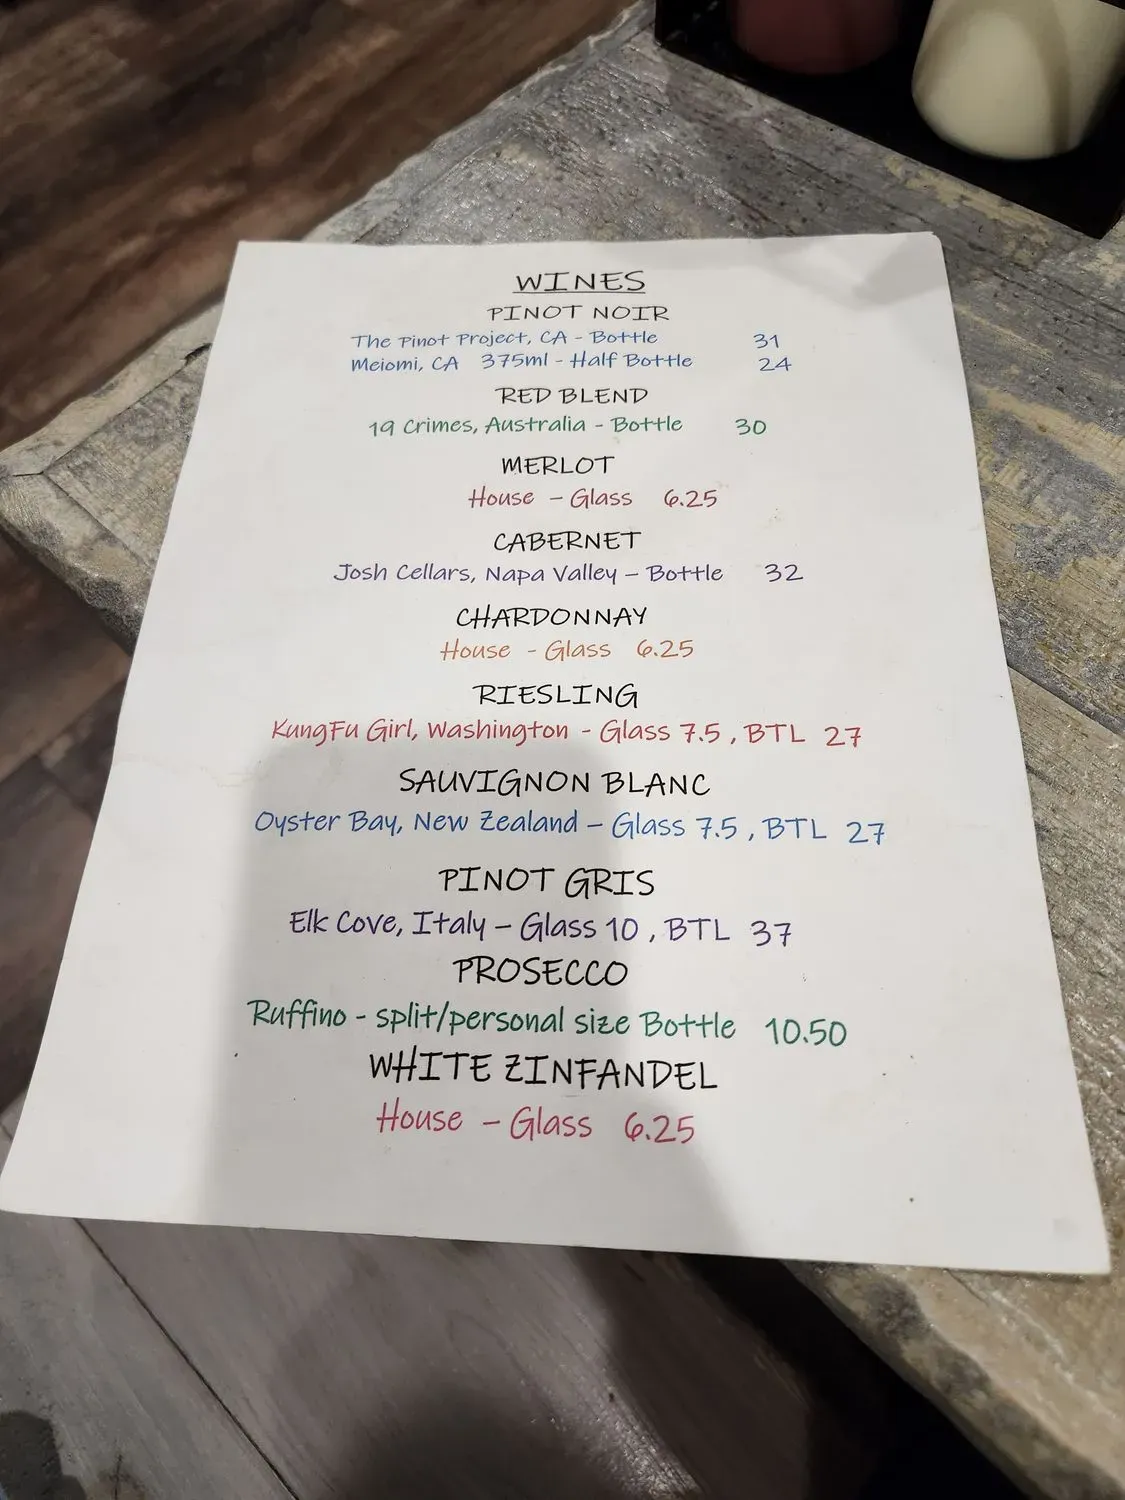 WINES
PINOT NOIR
The Pinot Project, CA - Bottle 31
Meiomi, CA 375ml - Half Bottle 24
RED BLEND
19 Crimes, Australia - Bottle 30
MERLOT
House - Glass 6.25
CABERNET
Josh Cellars, Napa Valley - Bottle 32
CHARDONNAY
House - Glass 6.25
RIESLING
KungFu Girl, Washington - Glass 7.5 , BTL 27
SAUVIGNON BLANC
Oyster Bay, New Zealand - Glass 7.5 , BTL 27
PINOT GRIS
Elk Cove, Italy - Glass 10 , BTL 37
PROSECCO
Ruffino - split/personal size Bottle 10.50
WHITE ZINFANDEL
House - Glass 6.25